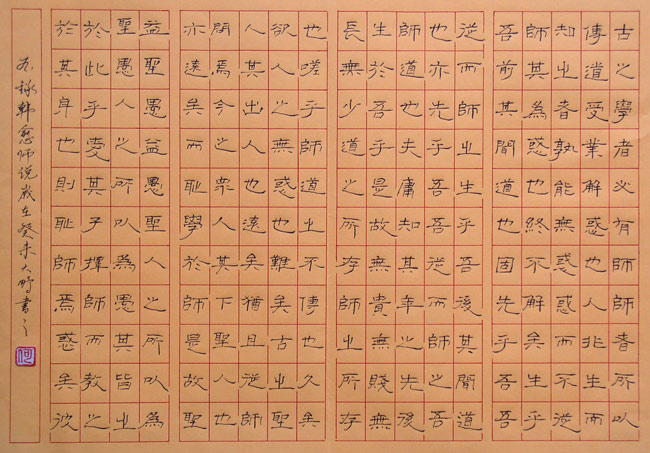 古之學者必有師師者所以
傳道受業解惑也人非生而
知之者孰能無惑惑而不從
師其為惑也終不解矣生乎
吾前其聞道也固先乎吾吾
從而師之生乎吾後其聞道
也亦先乎吾吾從而師之吾
師道也夫庸知其年之先後
生於吾乎是故無貴無賤無
長無少道之所存師之所存
也嗟乎師道之不傳也久矣
欲人之無惑也難矣古之聖
人其出人也遠矣猶且從師
問焉今之眾人其下聖人也
亦遠矣而恥學於師是故聖
益聖愚益愚聖人之所以為
聖愚人之所以為愚其皆出
於此乎愛其子擇師而教之
於其身也則恥師焉惑矣彼
右錄韓愈师说歲在癸未大鵬書之